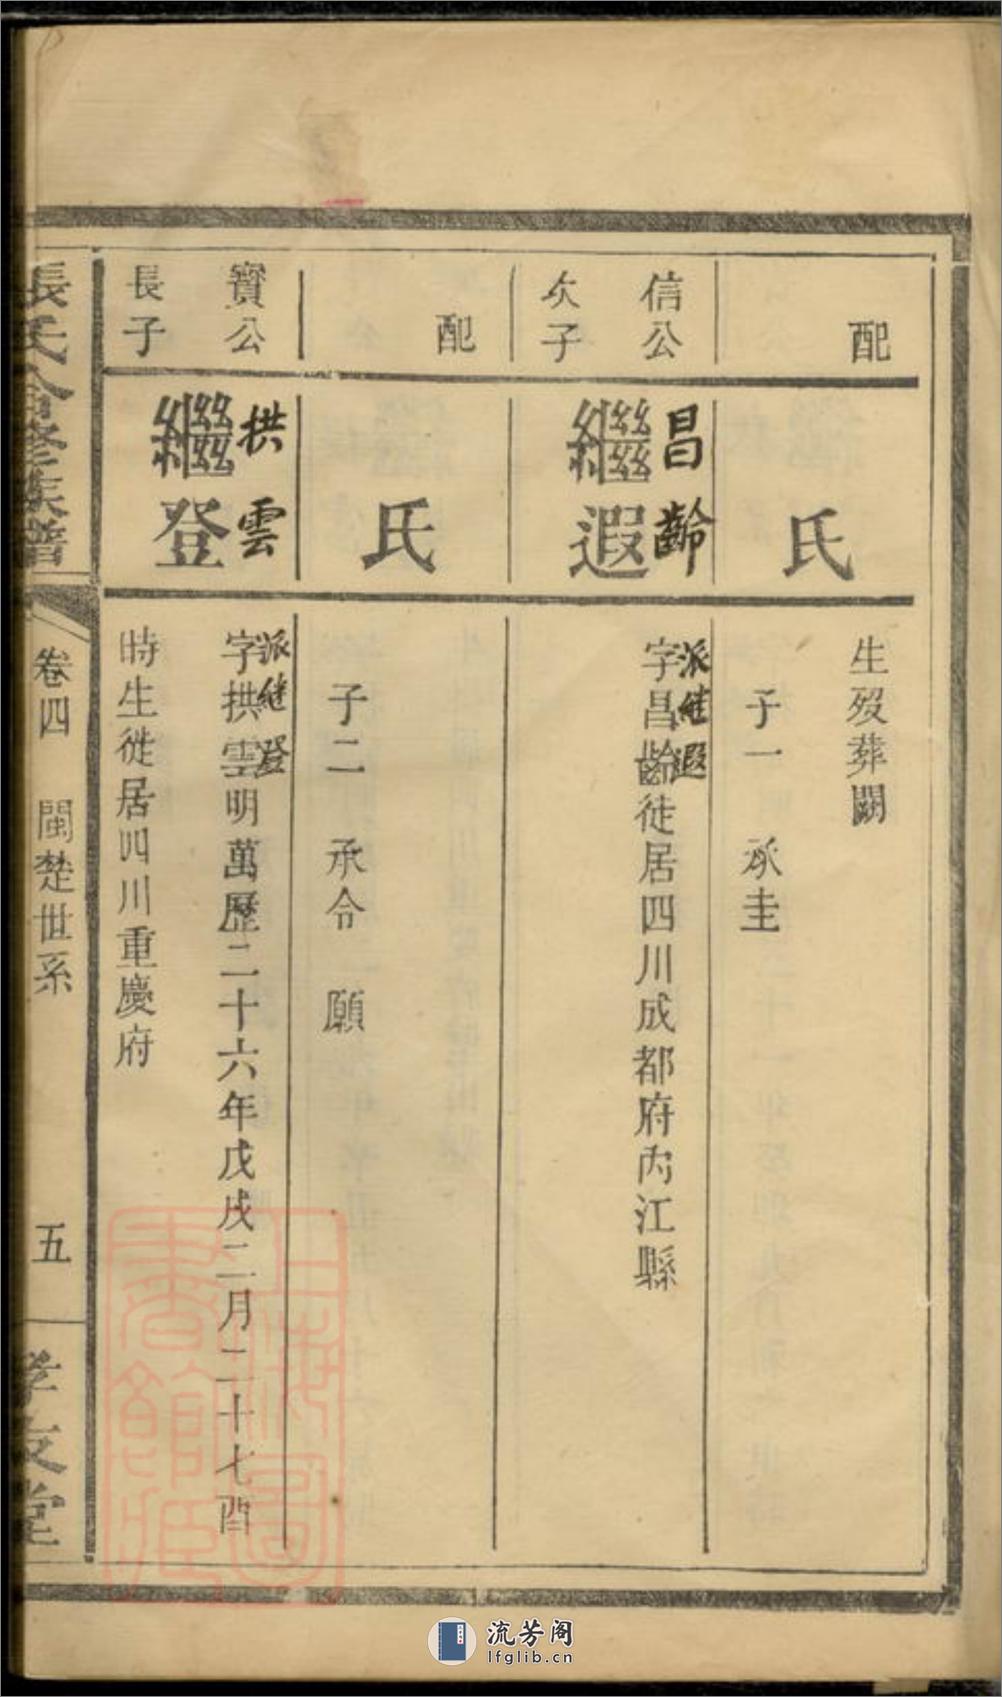 配
氏
生歿葬闕
子一 承圭
信公
次子
昌齡
繼遐
派继遐
字昌齡徙居四川成都府內江縣
配
氏
子二 承令 願
寶公
長子
拱雲
繼登
派继登
字拱雲明萬歷二十六年戊戌二月二十七酉
時生徙居四川重慶府
張氏合修族譜
卷四 閩楚世系
五
孝友堂
上海圖書館藏
流芳阁
lfglib.cn